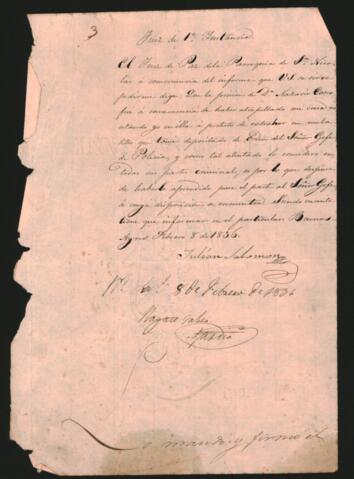 3
Juez de 1ª Instancia
El Juez de Paz de la Parroquia de Sn. Nico-
las a consecuencia del informe que VS se sirve
pedirme digo: Que la prision de Dn. Nazario
fue á consecuencia de haber atropellado mi casa
estando yo en ella á pretesto de estraher un mula-
tillo que tenia depositado de Orden del Señor Gefe
de Policia, y como tal atentado lo considero en
todas sus partes criminal, es por lo que despues
de haberlo aprendido pase el parte al Señor Gefe
á cuya disposicion se encuentra siendo cuanto
tiene que informar en el particular Buenos
Ayres Febrero 8 de 1836
Julian Salomon
8 de Febrero de 1836
Hagase saber
mando y firmo el